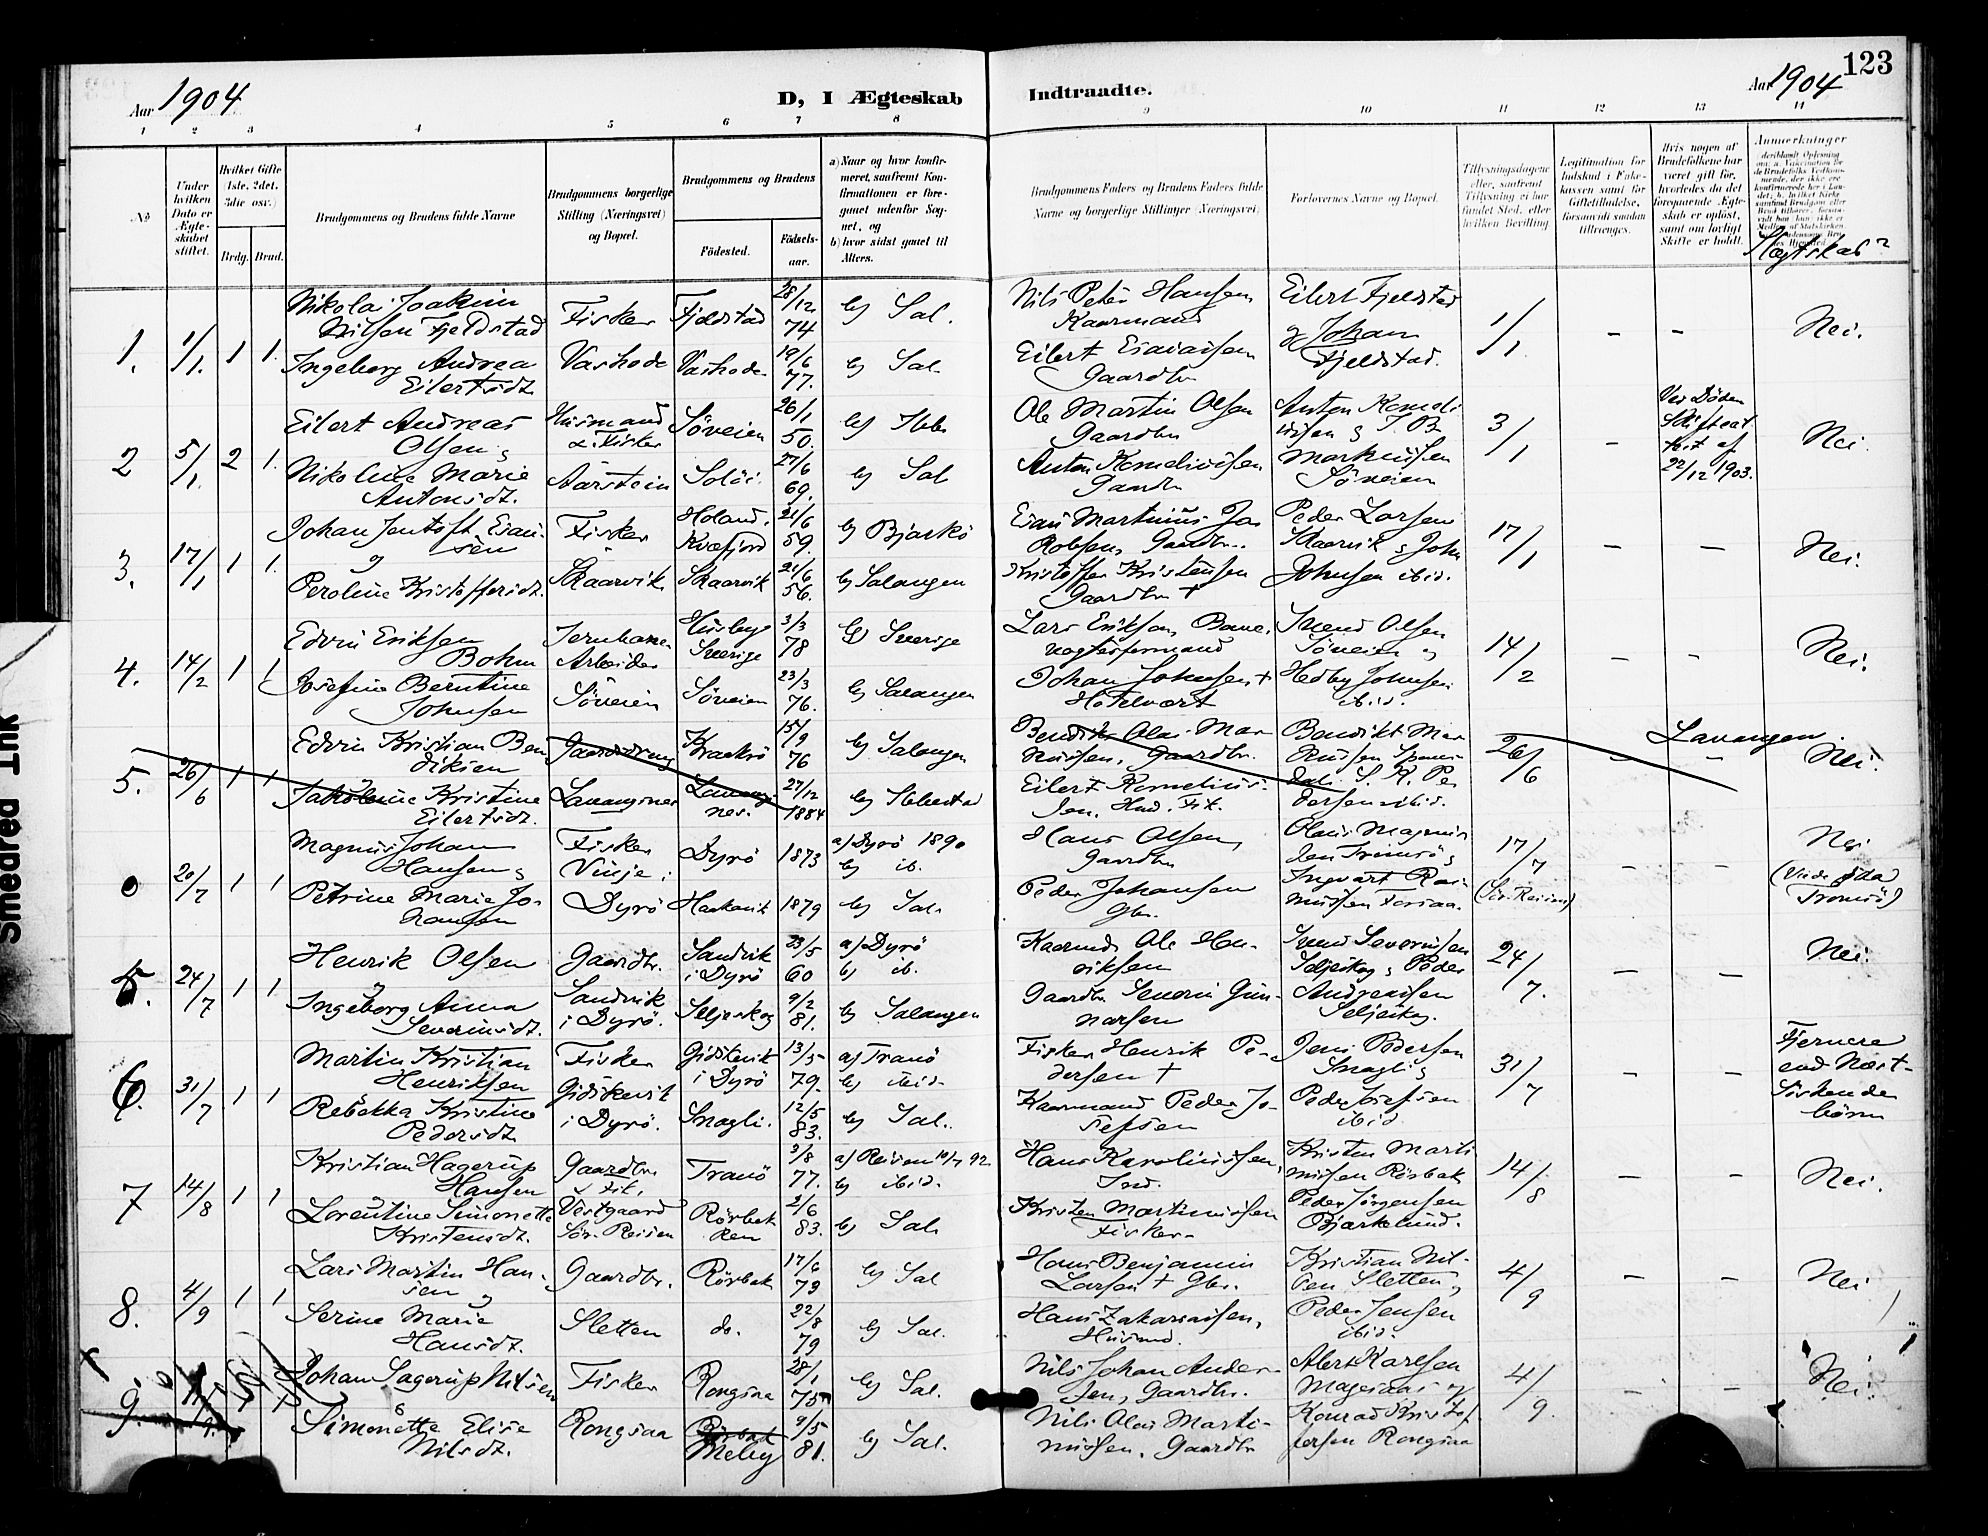 123
Aar 1904
D, I Ægteskab Indtraadte.
Aar 1904
1 2 3 4 5 6 7 8 9 10 11 12 13 14
No
Under hvilken Dato er Ægteskabet stiftet.
Hvilket Gifte (1ste, 2det, 3die osv.)
Brdg. Brud.
Brudgommens og Brudens fulde Navne
Brudgommens borgerlige Stilling (Næringsvei) og Bopæl.
Brudgommens og Brudens
Födested.
Födsels-aar.
a) Naar og hvor konfirmeret, saafremt Konfirmationen er foregaaet udenfor Sognet, og
b) hvor sidst gaaet til Alters.
Brudgommens Faders og Brudens Faders fulde Navne og borgerlige Stillinger (Næringsvei)
Forlovernes Navne og Bopæl.
Tillysningsdagene eller, saafremt Tillysning ei har fundet Sted, efter hvilken Bevilling
Legitimation for Indskud i Enkekassen samt for Giftetilladelse, forsaavidt saadan tiltrænges.
Hvis nogen af Brudefolkene har været gift før, hvorledes da det foregaaende Ægteskab er opløst, samt om lovligt Skifte er holdt.
Anmerkninger
Slægtskab?
1. 1/1. 1 1.
Nikolai Joakim Nilsen Fjeldstad
Fisker
Fjeldstad
28/12 74
b) Sal.
Nils Peter Hansen Kaarmand
Eilert Fjeldstad
1/1
-
-
Nei.
Ingeborg Andrea Eilertsdt.
Vashode
Vashode
19/6 77.
b) Sal.
Eilert Esaiassen Gaardbr
og Johan Fjeldstad.
2 5/1. 2 1.
Eilert Andreas Olsen og
Husmand & Fisker
Söveien
26/1 50.
b) Ibb
Ole Martin Olsen Gaardbr
3/1
-
Ved Döden Skifteattest af 22/12 1903.
Nei.
Nikoline Marie Antonsdt.
Aarstein
Solöi
27/6 69.
b) Sal
Anton Korneliussen Gaardbr
Markussen Söveien
3. 17/1 1 1.
Johan Jentoft Esaiassen og
Fisker
Holand. Kvæfjord
21/6 59.
b) Bjarkö
Esaias Martinius Jakobsen, Gaardbr.
Peder Larsen Skaarvik & John
17/1
-
-
Nei.
Peroline Kristoffersdt.
Skaarvik
Skaarvik
21/6 56.
b) Salangen
Kristoffer Kristensen Gaardbr +
Johnsen ibid.
4. 14/2 1 1
Edvin Eriksen Bohm
Jernbane Arbeider
Husby Sverige
3/3 78
b) Sverige
Lars Erikson, Banevogterformand
Svend Olsen Söveien og
14/2
-
-
Nei.
Josefine Berntine Johnsen
Söveien
Söveien
23/3 76.
b) Salangen
Johan Johnsen + Hotelvært
Hedly Johnsen ibid.
5. 26/6 1 1
Edvin Kristian Bendiksen
Gaardbrug
Kraakrö
15/9 76
b) Salangen
Bendik Olai Markussen, Gaardbr.
Bendikt Markussen
26/6
-
Lavangen
-
Nei.
Jakobine Kristine Eilertsdt.
Lavangsnes
Lavangsnes.
27/12 1884
b) Ibbestad
Eilert Kornelius-sen, Hmd. Fik.
S. R. Pedersen ibid.
20/7 1 1
Magnus Johan Hansen &
Fisker Vinje i
Dyrö
1873
a) Dyrö 1890
b) ib.
Hans Olsen, Gaardbr
Olaus Magnussen
17/7
(Sör-Reisen)
-
-
Nei
Petrine Marie Johansen
Dyrö
1879
b) Sal.
Peder Johansen Gbr.
Ingvart Rasmussen
Tromsö)
5. 24/7 1 1
Henrik Olsen
Gaardbr.
Sandvik i Dyrö
23/5 60
a) Dyrö
b) ib.
Kaarmd. Ole Henriksen
Svend Severinsen Seljeskog & Peder
24/7.
-
-
Nei.
Ingeborg Anna Severinsdt.
Sandvik i Dyrö.
Seljeskog
9/2 81.
b) Salangen
Gaardbr. Severin Gunnarsen
Andreassen Seljeskog.
6. 31/7 1 1
Martin Kristian Henriksen
Fisker
Gidskevik i Dyrö
13/5 79.
a) Tranö
b) ibid.
Fisker Henrik Pedersen +
Jens Pedersen Snagli &
31/7
-
-
Fjernere end Næst-Söskendebörn
Rebekka Kristine Pedersdt.
Gidskevik i Dyrö.
Snagli.
12/5 83.
b) Sal.
Kaarmand Peder Josefsen
Peder Josefsen ibid.
7 14/8 1 1
Kristian Hagerup Hansen
Gaardbr. & Fik.
Tranö
3/8 77.
a) Reisen 10/7 92
b) ibid.
Hans Karolinussen, Ind.
Kristen Martinussen Rörbak
14/8
-
-
Nei.
Lorentine Simonette Kristensdt.
Vestgaard Sör-Reisen
Rörbakken
2/6 83.
b) Sal
Kristen Martinussen Fisker
Peder Jörgensen Bjørkelund.
8. 4/9 1 1
Lars Martin Hansen og
Gaardbr.
Rörbak
17/6 79
b) Sal
Hans Benjamin Larsen + Gbr.
Kristian Nilsen Sletten &
4/9
-
-
Nei
Serine Marie Hansdt.
Sletten
do.
22/8 79
b) Sal.
Hans Zakariassen, Husmd.
Peder Jensen ibid.
9.
Johan Hagerup Nilsen
Fisker
Rongsaa
28/1 75
b) Sal.
Nils Johan Andersen, Gaardbr.
Albert Karlsen
4/9.
-
-
Nei.
Simonette Elise Nilsdt.
Rongsaa
Rörbak Meby
9/5 81.
b) Sal.
Nils Olai Martinussen, Gaardbr
Konrad Kristofersen Rongsaa
Smedred Ink